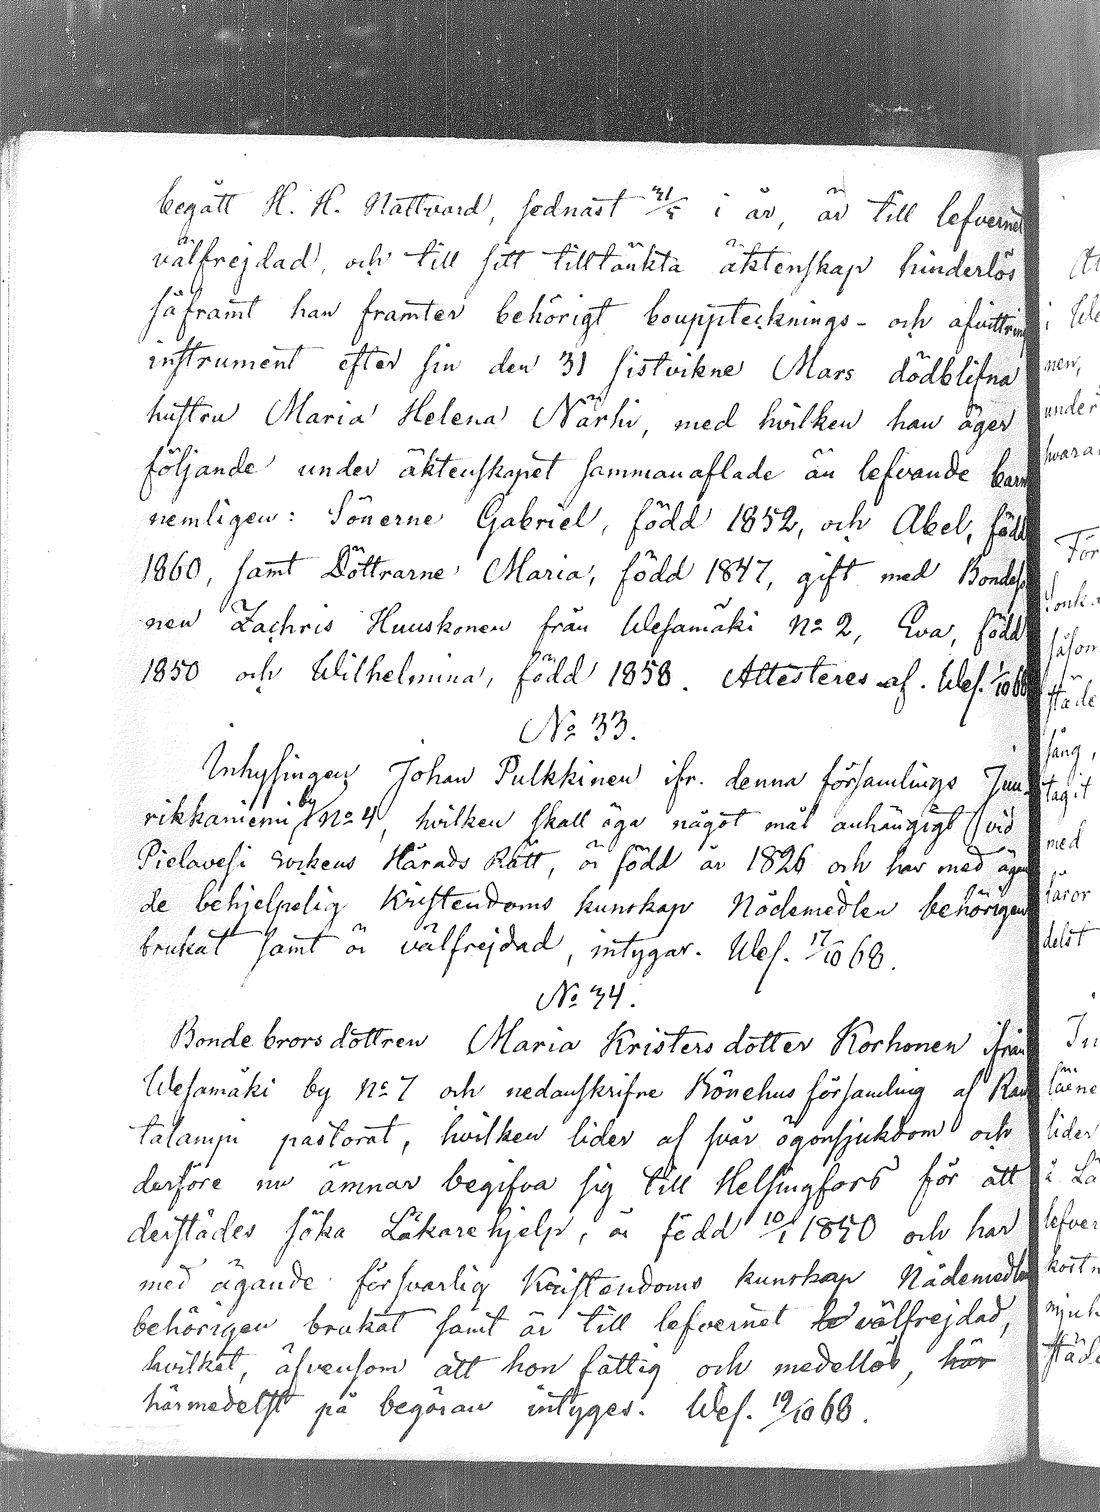 begått H. H. Nattvard, sednast 31/5 i år, är till lefvernet
välfrejdad, och till sitt tilltänkta äktenskap hinderlös
såframt han framter behörigt bouppteknings- och afvittring
instrument efter sin den 31 sistvikne Mars dödblifna
hustru Maria Helena Närhi, med hvilken han äger
följande under äktenskapet sammanaflade än lefvande barn
nemligen: Sönerne Gabriel, född 1852, och Abel, född
1860, samt Döttrarne Maria, född 1847, gift med Bondeso
nen Zachris Huuskonen från Wesamäki No 2, Eva, född
1850 och Wilhelmina, född 1858. Attesteres af. Wes. 1/10 68
No 33.
Inhysingen Johan Pulkkinen ifr. denna församlings Juu-
rikkaniemi by No 4, hvilken skall äga något mål anhängigt vid
Pielavesi Sockens Härads Rätt, är född år 1826 och har med ägan
de behjelpelig Kristendoms kunskap Nådemedlen behörigen
brukat samt är välfrejdad, intygar. Wes. 17/10 68.
No 34.
Bondebrorsdottren Maria Kristersdotter Korhonen ifrån
Wesamäki by No 7 och nedanskrifne Könehus församling af Rau
talampi pastorat, hvilken lider af svår ögonsjukdom och
derföre nu ämnar begifva sig till Helsingfors för att
derstädes söka Läkarehjelp, är född 10/1 1850 och har
med ägande försvarlig Kristendoms kunskap Nådemedlen
behörigen brukat samt är till lefvernet be välfrejdad,
hvilket, äfvensom att hon fattig och medellös, här
härmedelst på begäran intyges. Wes. 19/10 68.